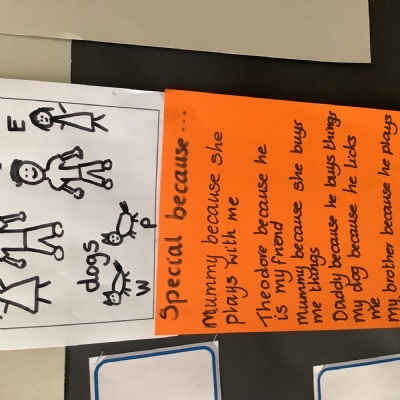 E
dogs
W
P
Special because...
Mummy because she
plays with me
Theodore because he
is my friend
Mummy because she buys
me things
Daddy because he buys things
my dog because he licks
me
My brother because he plays